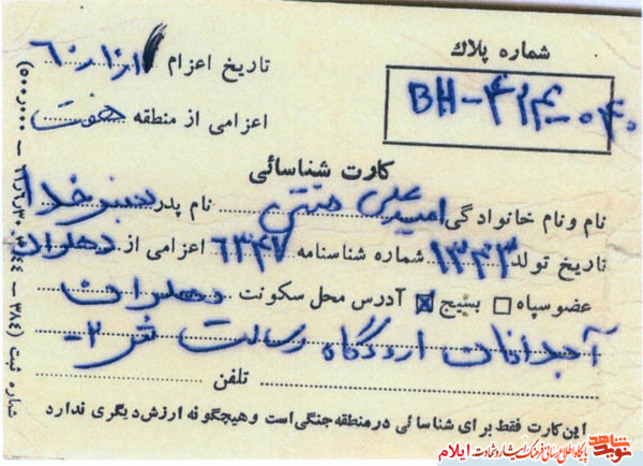 شماره پلاك
BH-
تاریخ اعزام
اعزامی از منطقه هفت
کارت شناسائی
نام و نام خانوادگی امید علی نام پدر
تاریخ تولد ۱۳۴۳ شماره شناسنامه ۶۳۴۷ اعزامی از دهلران
عضو سپاه بسیج آدرس محل سکونت دهلران
اردوگاه رسالت ش ۲-
تلفن
این کارت فقط برای شناسائی در منطقه جنگی است و هیچگونه ارزش دیگری ندارد
شماره ثبت
نوید شاهد
پایگاه اطلاع رسانی فرهنگ ایثار و شهادت ایلام